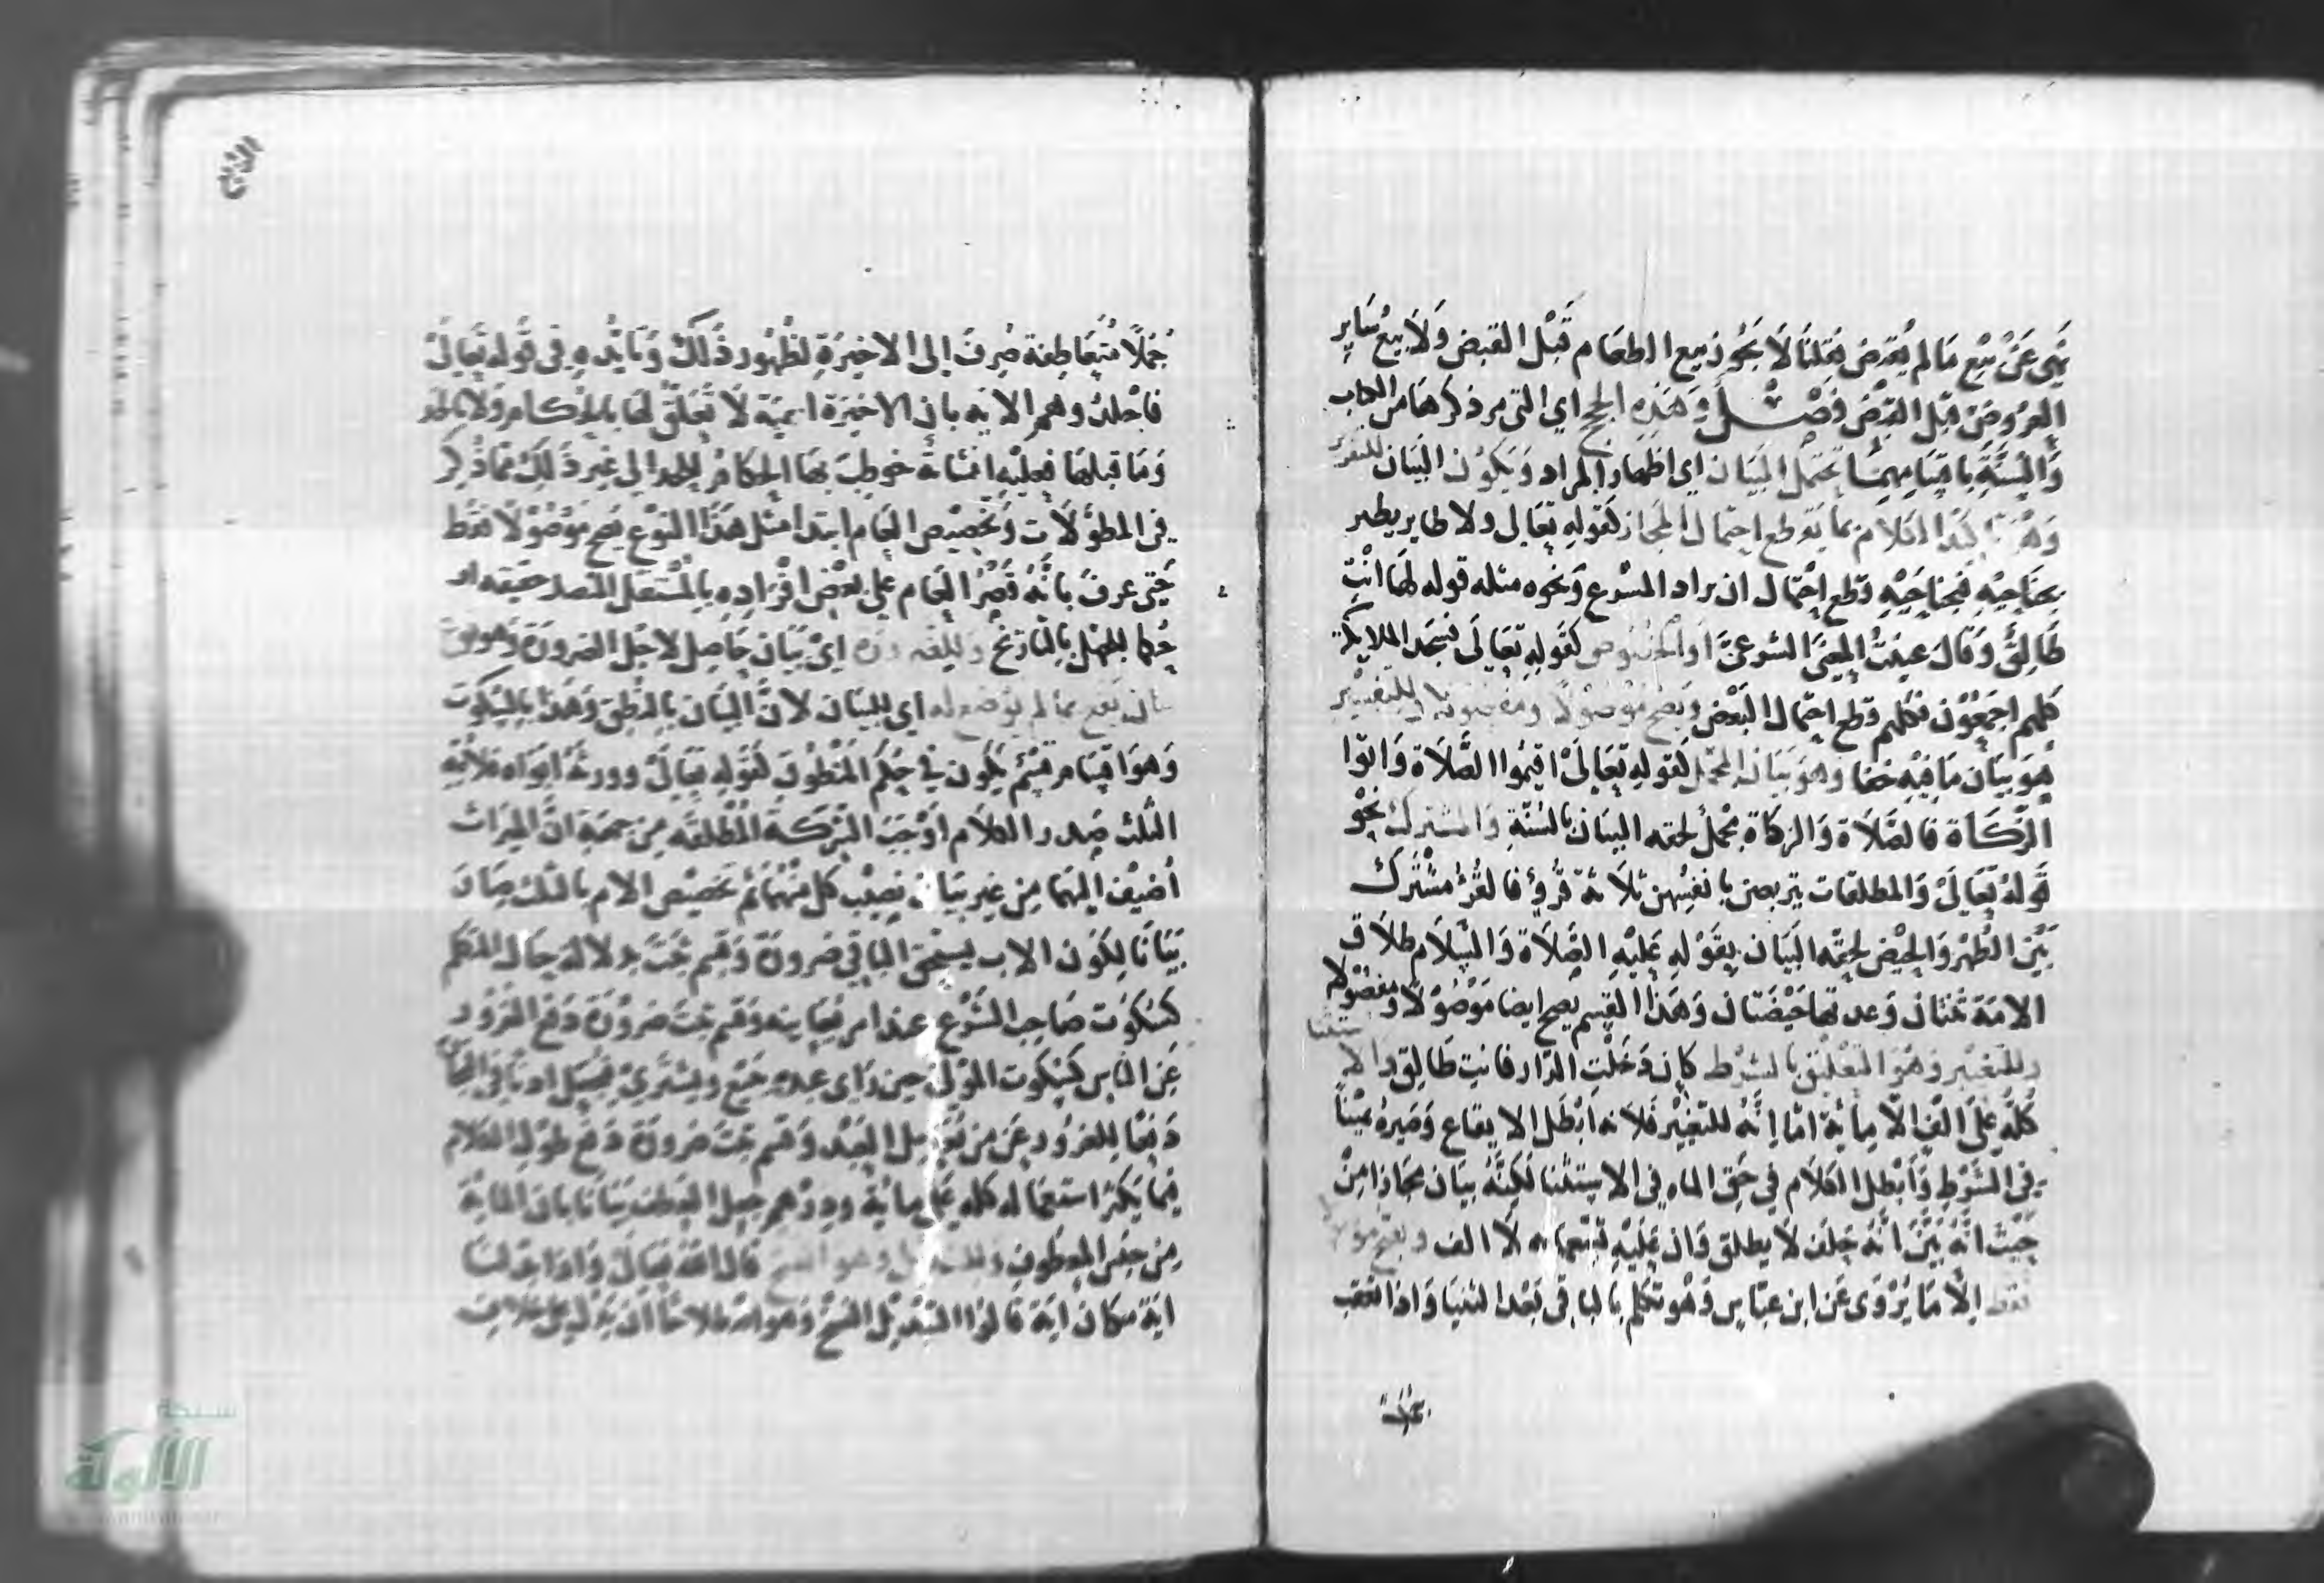 نهى عن بيع مالم يقبض فقلنا لا يجوز بيع الطعام قبل القبض ولا بيع ساير
العروض قبل القبض فصل وهذه الحجج اي التي مر ذكرها من الكتاب
والسنة باقسامهما تحتمل البيان اي اظهار المراد ويكون البيان للتقرير
الكلام بما يقطع احتمال المجاز كقوله تعالى ولا طاير يطير
بجناحيه فبجناحيه قطع احتمال ان يراد المسرع ونحوه مثله قوله لها انت
طالق وقال عينت المعنى الشرعي او الخصوص كقوله تعالى فسجد الملايكة
كلهم اجمعون فكلهم قطع احتمال البعض ويصح موصولا ومفصولا وللتفسير
هو بيان ما فيه خفا وهو بيان المجمل كقوله تعالى اقيموا الصلاة واتوا
الزكاة فالصلاة والزكاة مجمل لحقه البيان بالسنة والمشترك نحو
قوله تعالى والمطلقات يتربصن بانفسهن ثلاثة قرؤ فالقرؤ مشترك
بين الطهر والحيض لحقه البيان بقوله عليه الصلاة والسلام طلاق
الامة ثنتان وعدتها حيضتان وهذا القسم يصح ايضا موصولا ومفصولا
وللتغيير وهو التعليق بالشرط كان دخلت الدار فانت طالق والا
كله علي الف الا مائة اما انه للتغيير فلانه ابطل الايقاع وصيره يمينا
في الشرط وابطل الكلام في حق الماه في الاستثنا لكنه بيان مجازا من
حيث انه بين انه حلف لا يطلق وان عليه تسعمائه لا الف ويصح
فقط الا ما يروى عن ابن عباس وهو تكلم بالباقي بعد الثنيا واذا تعقب
جملا متعاطفة صرف الى الاخيرة لظهور ذلك وتايده في قوله تعالى
فاجلدوهم الايه بان الاخيرة اسمية لا تعلق لها بالحكام ولا بالحد
وما قبلها فعليه انشائة خوطب بها الحكام للحد الى غير ذلك مما ذكر
في المطولات وتخصيص العام ابتدا مثل هذا النوع يصح موصولا فقط
حتى عرف بانه قصر العام على بعض افراده بالمستقل المتصل حقيقه او
حكما للجهل بالتاريخ وللضرورة اي بيان حاصل لاجل الضرورة وهو نوع
بيان يقع بما لم يوضع له اي للبيان لان البيان بالنطق وهذا بالسكوت
وهو اقسام قسم يكون في حكم المنطوق كقوله تعالى وورثه ابواه فلامه
الثلث صدر الكلام اوجب الشركة المطلقه من جهة ان الميراث
اضيف اليهما من غير بيان نصيب كل منهما ثم تخصيص الام بالثلث صار
بيانا لكون الاب يستحق الباقي ضرورة وقسم ثبت بدلالة حال المتكلم
كسكوت صاحب الشرع عند امر يعاينه وقسم ثبت ضرورة دفع الغرور
عن الناس كسكوت المولى حين راى عبده يبيع ويشتري
دفعا للغرور عن من يعامل العبد وقسم ثبت ضرورة دفع طول الكلام
فيما يكثر استعماله كله علي مائة ودرهم جعل العطف بيانا بان المائة
من جنس المعطوف وللتبديل وهو النسخ قال الله تعالى واذا بدلنا
اية مكان اية قالوا التبديل النسخ وهو
جملا